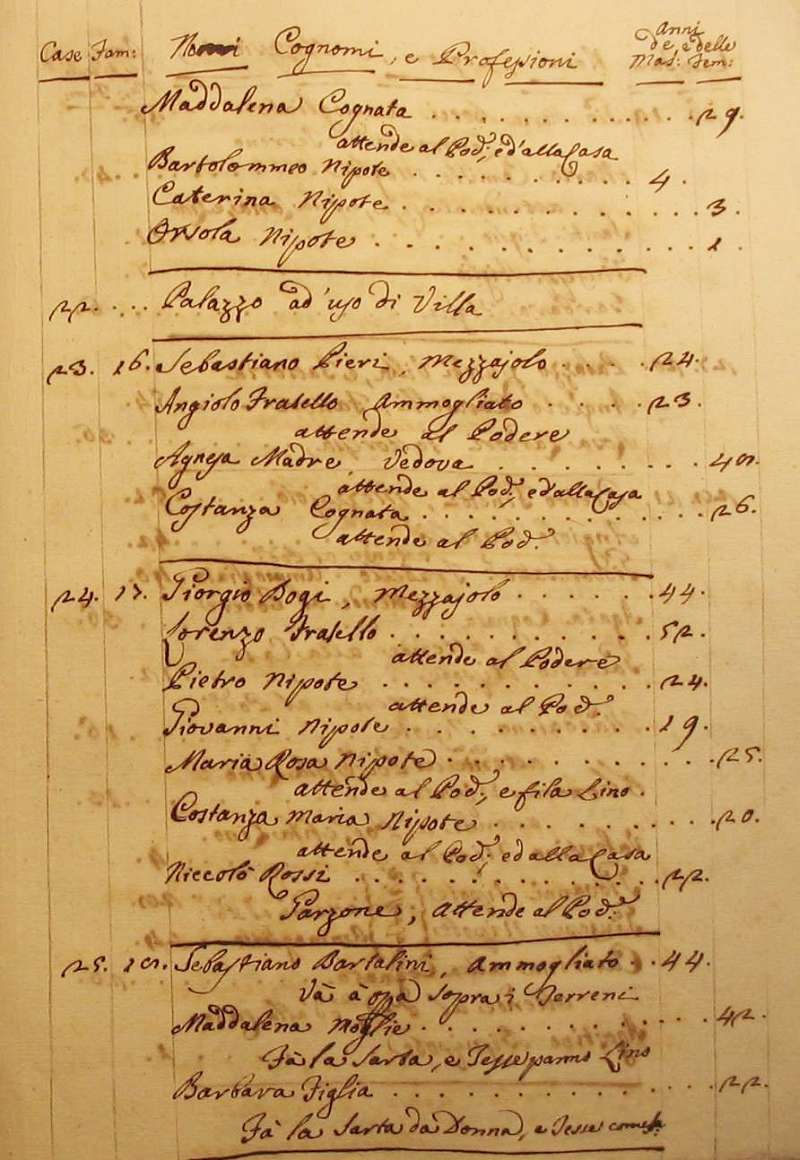 Case Fam: Nomi Cognomi, e Professioni Anni de, e delle Mas: Fem:
Maddalena Cognata . . . . . . . . . . . . 29.
attende al Pod:, ed'alla Casa
Bartolommeo Nipote . . . . . . . . . . 4.
Caterina Nipote . . . . . . . . . . . . 3.
Orsola Nipote . . . . . . . . . . . . 1.
22. . . . Palazzo ad'uso di Villa
23. 16. Sebastiano Pieri, Mezzajolo . . . . 24.
Angiolo Fratello Ammogliato . . . . 23.
attende al Podere
Agnesa Madre, Vedova . . . . . . . .
attende al Pod:, ed'alla Casa
Costanza Cognata . . . . . . . . . . . . 26.
attende al Pod:
24. 17. Giorgio Bogi, Mezzajolo . . . . . . 44.
Lorenzo Fratello . . . . . . . . . . . 52.
attende al Podere
Pietro Nipote . . . . . . . . . . . 24.
attende al Pod:
Giovanni Nipote . . . . . . . . . . 19.
Maria Rosa Nipote . . . . . . . . . . . 25.
attende al Pod:, e fila Lino.
Costanza Maria Nipote . . . . . . . . . 20.
attende al Pod:, ed alla Casa
Niccolò Rossi . . . . . . . . . . . . 22.
Garzone, attende al Pod:
25. Sebastiano Bartalini, Ammogliato . . 44.
Và à opa sopra i Terreni
Maddalena Moglie . . . . . . . . . . . . 42.
Fà la Sarta, e Tesse panno Lino
Barbara Figlia . . . . . . . . . . . . 22.
Fà la Sarta da Donna, e Tesse come sa: